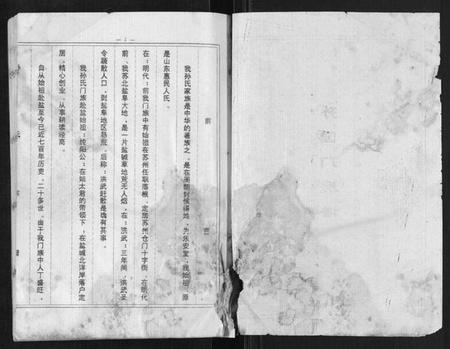 — 1 —
前 言
我孙氏家族是中华的著族之，是在周朝封侯得地，为乐安堂，我始祖，源
是山东惠民人氏。
在：明代：前我门族中有始祖在苏州任职落根，定居苏州仓门十字街，在明代
前，我苏北盐阜大地，是一片盐碱草地荒无人烟，在：洪武：三年间，洪武圣
令疏散人口，到盐阜地区垦荒，后称：洪武赶散是确有其事。
我孙氏门族赴盐始祖：沈阳公：在姑太君的带领下，在盐城北洋岸落户定
居，精心创业，从事耕读经商。
自从始祖赴盐至今已近七百年历史，二十多世，由于我门族中人丁盛旺，